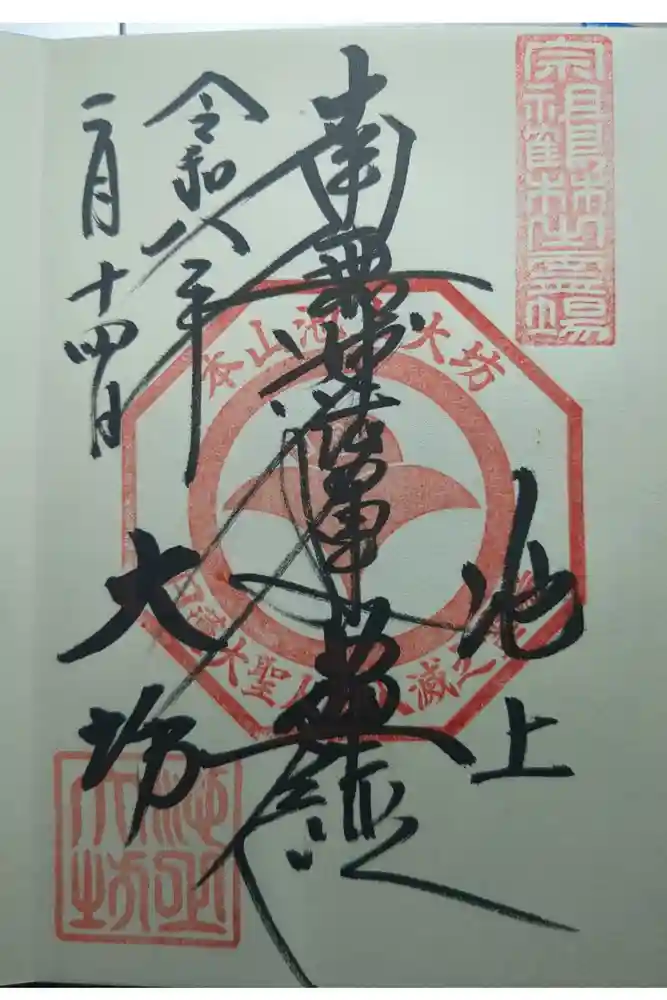 南無妙法蓮華経
池上
大坊
令和八年
二月十四日
本山池上大坊
日蓮大聖人御入滅之霊場
池上
大坊